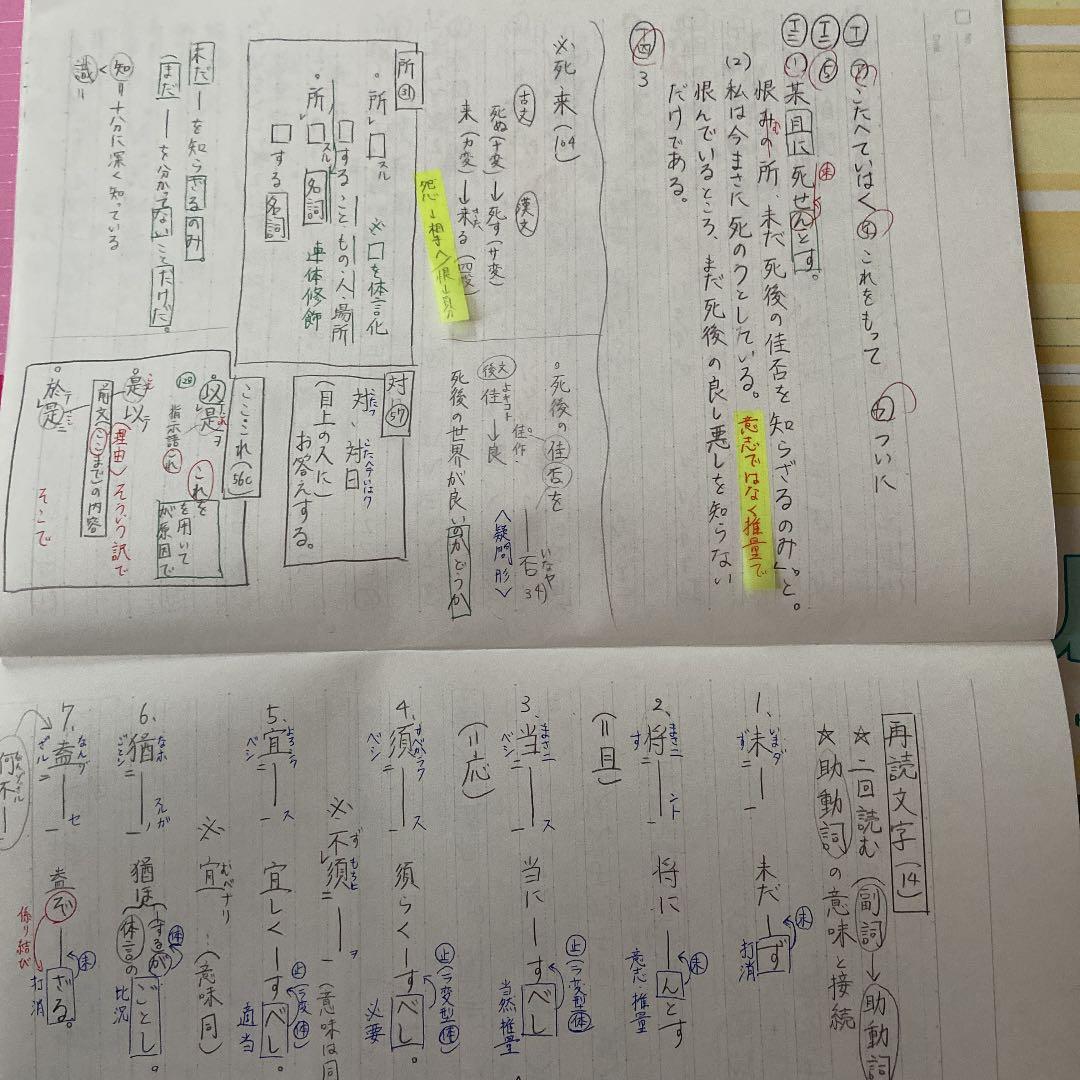 Ⅰ ㋐こたへていはく ㋑これをもって ㋒ついに
Ⅱ ⑤
Ⅲ (1)某且に死せんとす。
未
恨みの所、未だ死後の佳否を知らざるのみ」と。
(2)私は今まさに死のうとしている。
意志ではなく推量で
恨んでいるところ、まだ死後の良し悪しを知らない
だけである。
四 3
※死 来(104)
古文 漢文
死ぬ(ナ変)→死す(サ変)
来(カ変)→来る(四段)
きた
怨→相手へ/恨→自分
。死後の佳否を
佳作
後文 佳→良
よキコト
否
いなや
34)
〈疑問形〉
死後の世界が良いのかどうか
所(31)
。所レ□スル ※□を体言化
□すること・もの・人・場所
。所レ□スル 名詞 連体修飾
□する名詞
未だ―を知らざるのみ
(まだ―を分かってないことだけだ。
知=十分に深く知っている
識=
対(57)
対、対曰
こたへていはク
(目上の人に)
お答えする。
こここれ(56C)
。以是ヲ これを
(128) 指示語これ
を用いて
が原因で
。是以テ
(理由)そういう訳で
前文(ここまで)の内容
。於是
そこで
再読文字(14)
★二回読む(副詞→助動詞
★助動詞の意味と接続
1、未 いまダ ず 未だ―ず 未
打消
2、将 まさニ す ―ント 将に―んとす 未
意志・推量
(=且)
3、当 まさニ ベシ ―ス 当に―すべし 止(ラ変型体)
当然推量
(=応)
4、須 すべかラク ベシ ―ス 須らく―すべし。 止(ラ変型体)
必要
※不須 ずもちヒ ―ヲ (意味は同
5、宜 よろシク ベシ ―ス 宜しく―すべし。 止(ラ変体)
適当
※宜 むべナリ …(意味同)
6、猶 なホ ごとシ ―スルガ ノ 猶ほ(―するが 体
体言の ごとし。
比況
7、盍 なんゾ ざル ―セ 盍ぞ―ざる。 未
係り結び 打消
何不―